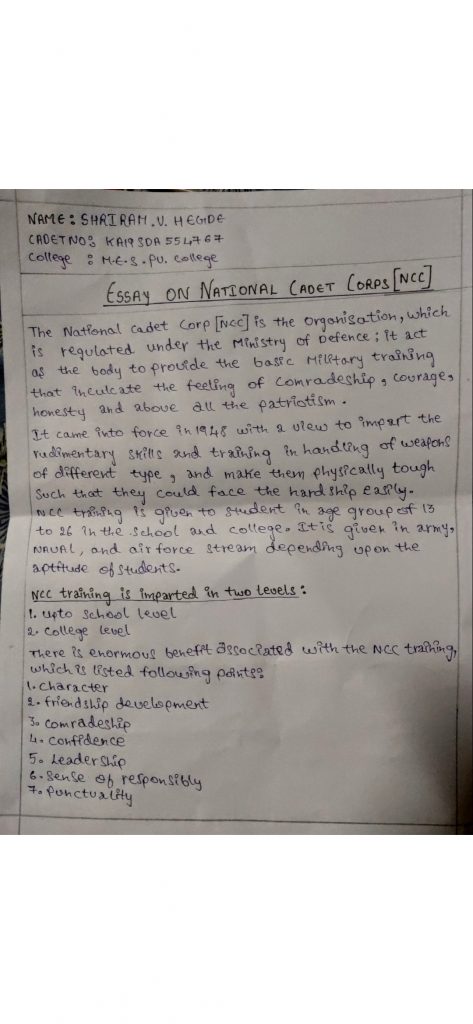 NAME: SHRIRAM.V. HEGDE
CADET NO: KA19SDA554767
College : M.E.S. PU. College
ESSAY ON NATIONAL CADET CORPS [NCC]
The National cadet Corp [NCC] is the Organisation, which
is regulated under the Ministry of Defence; it act
as the body to provide the basic Military training
that inculcate the feeling of Comradeship, Courage,
honesty and above all the patriotism.
It came into force in 1948 with a view to impart the
rudimentary skills and training in handling of weapons
of different type, and make them physically tough
Such that they could face the hardship easily.
NCC training is given to student in age group of 13
to 26 in the School and college. It is given in army,
NAVAL, and airforce stream depending upon the
aptitude of students.
NCC training is imparted in two levels:
1. upto School level
2. College level
There is enormous benefit associated with the NCC training,
which is listed following points:
1. character
2. friendship development
3. comradeship
4. confidence
5. Leadership
6. Sense of responsibly
7. Punctuality